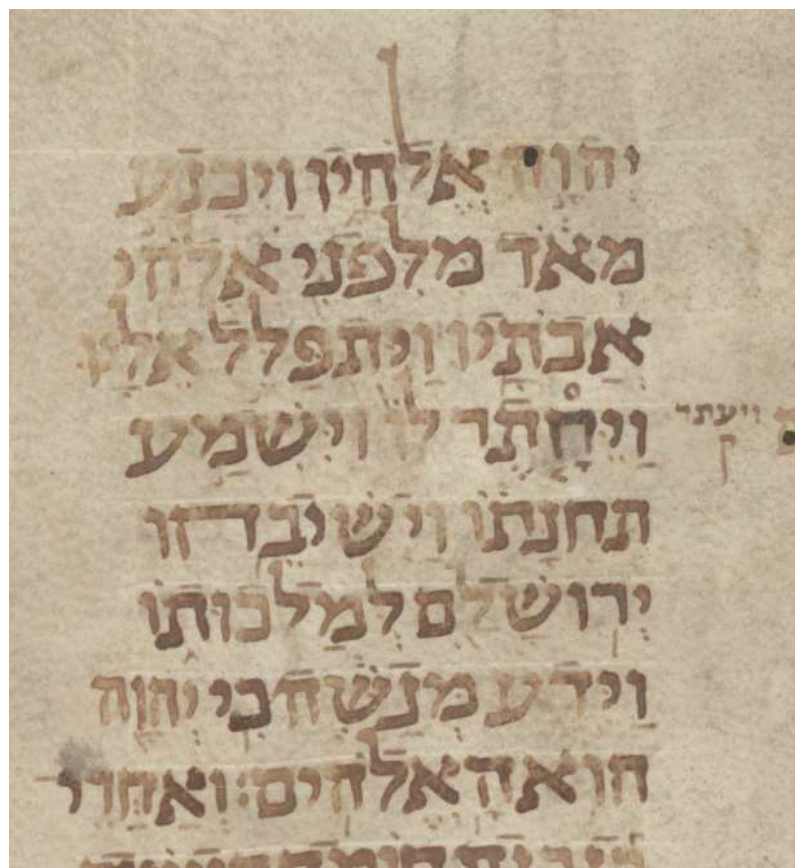 יהוה אלהיו ויכנע
מאד מלפני אלהי
אבתיו ויתפלל אליו
ויחתר לו וישמע
ויעתר
ק
תחנתו וישיבהו
ירושלם למלכותו
וידע מנשה כי יהוה
הוא האלהים׃ ואחרי